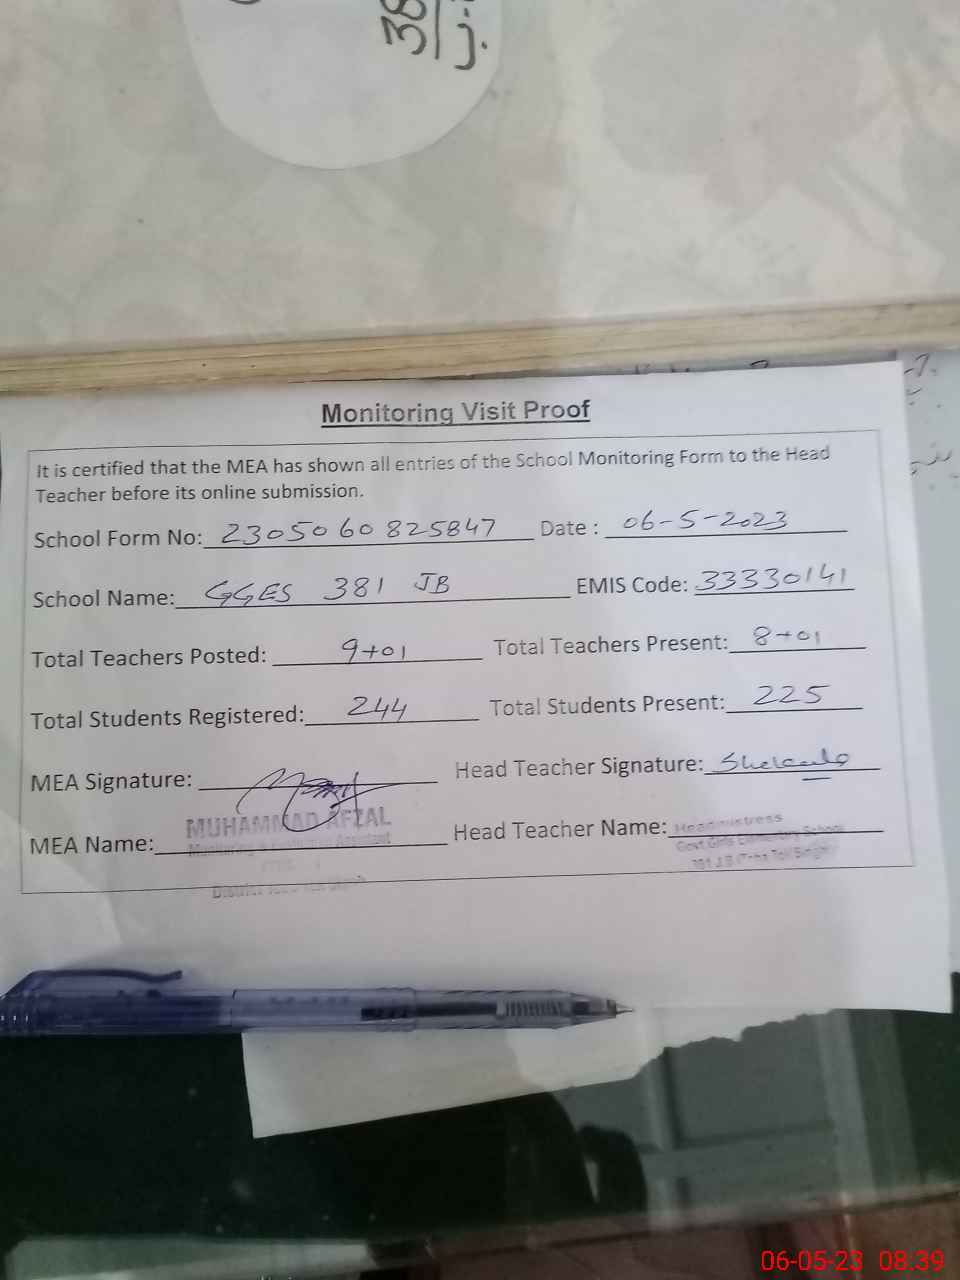 38
J.
Monitoring Visit Proof
It is certified that the MEA has shown all entries of the School Monitoring Form to the Head
Teacher before its online submission.
School Form No: 2305060825847 Date : 06-5-2023
School Name: GGES 381 JB EMIS Code: 33330141
Total Teachers Posted: 9+01 Total Teachers Present: 8+01
Total Students Registered: 244 Total Students Present: 225
MEA Signature: Head Teacher Signature:
MUHAMMAD AFZAL
MEA Name: Head Teacher Name: Headmistress
Govt Girls Elementary School
381 J.B
District
06-05-23 08:39